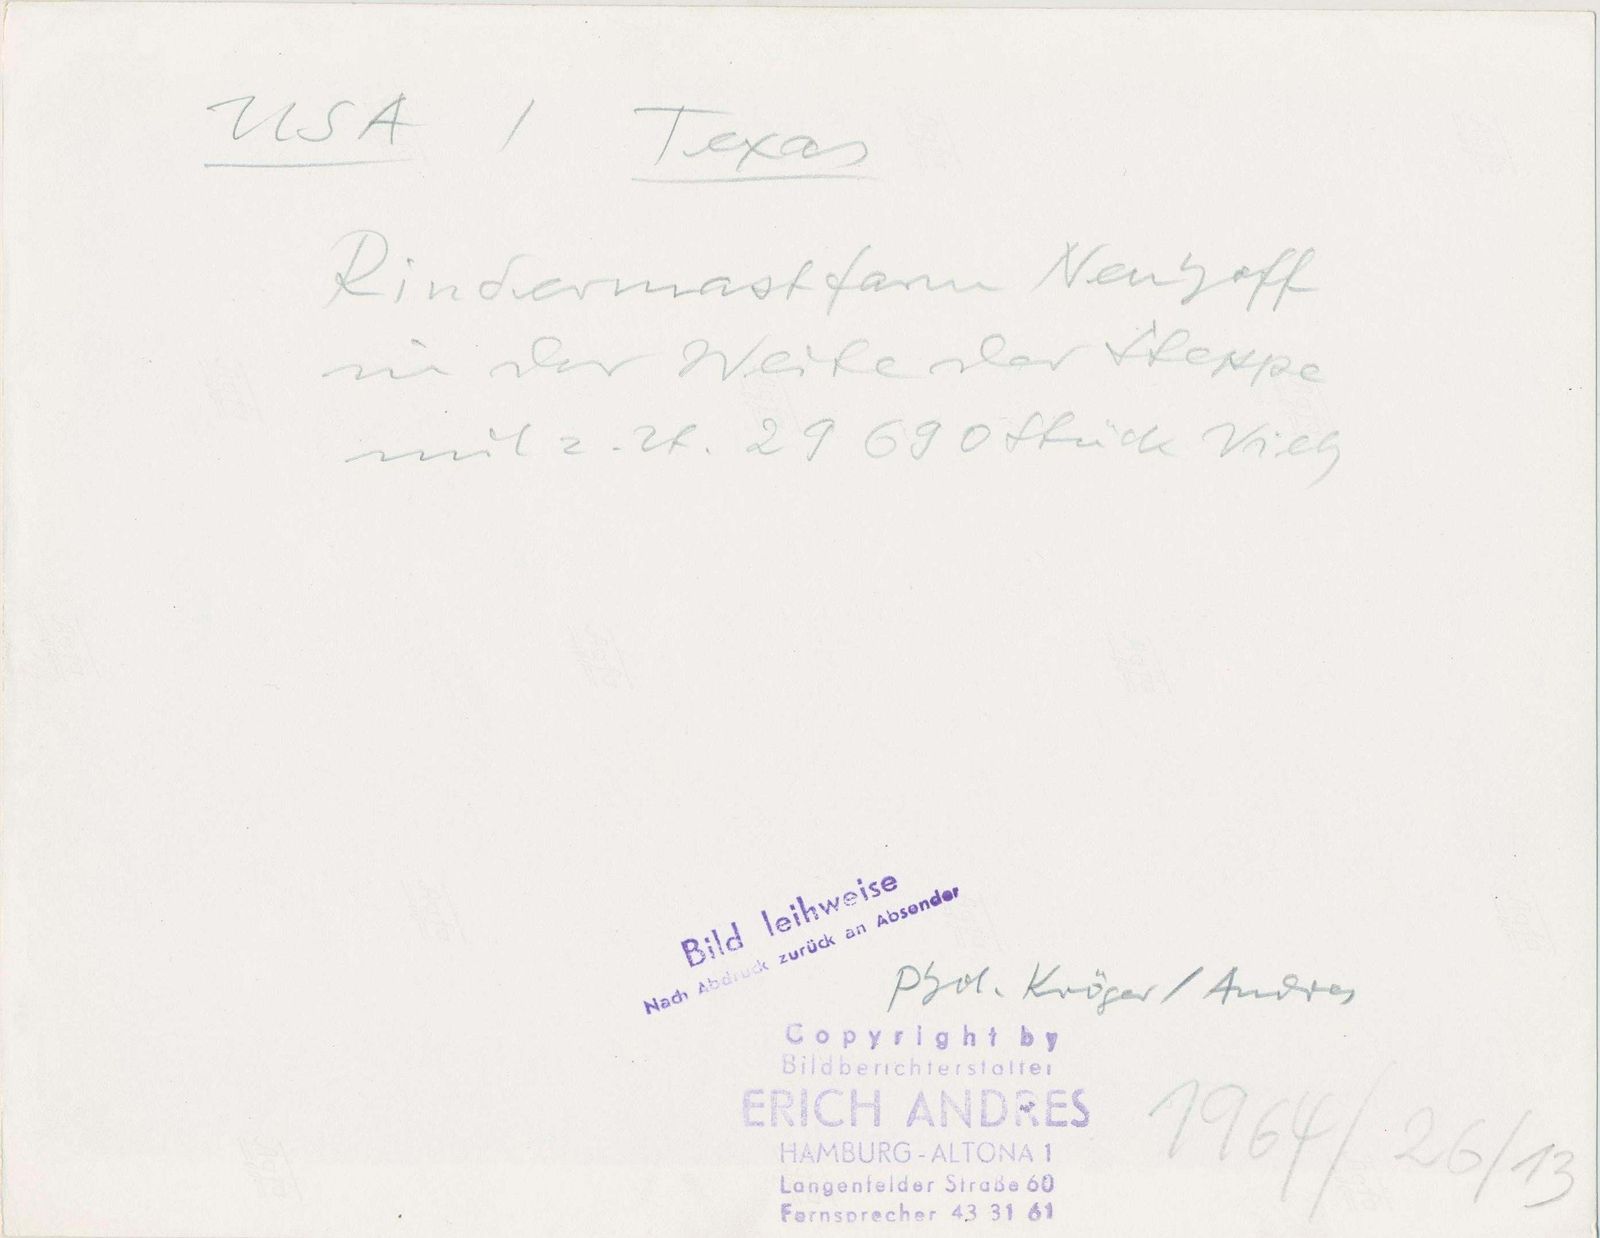 USA / Texas
Rindermastfarm Neuhoff
in der Weite der Steppe
mit z. Zt. 29 690 Stück Vieh
Bild leihweise
Nach Abdruck zurück an Absender
Phot. Kröger / Andres
Copyright by
Bildberichterstatter
ERICH ANDRES
HAMBURG-ALTONA 1
Langenfelder Straße 60
Fernsprecher 43 31 61
1964/26/13